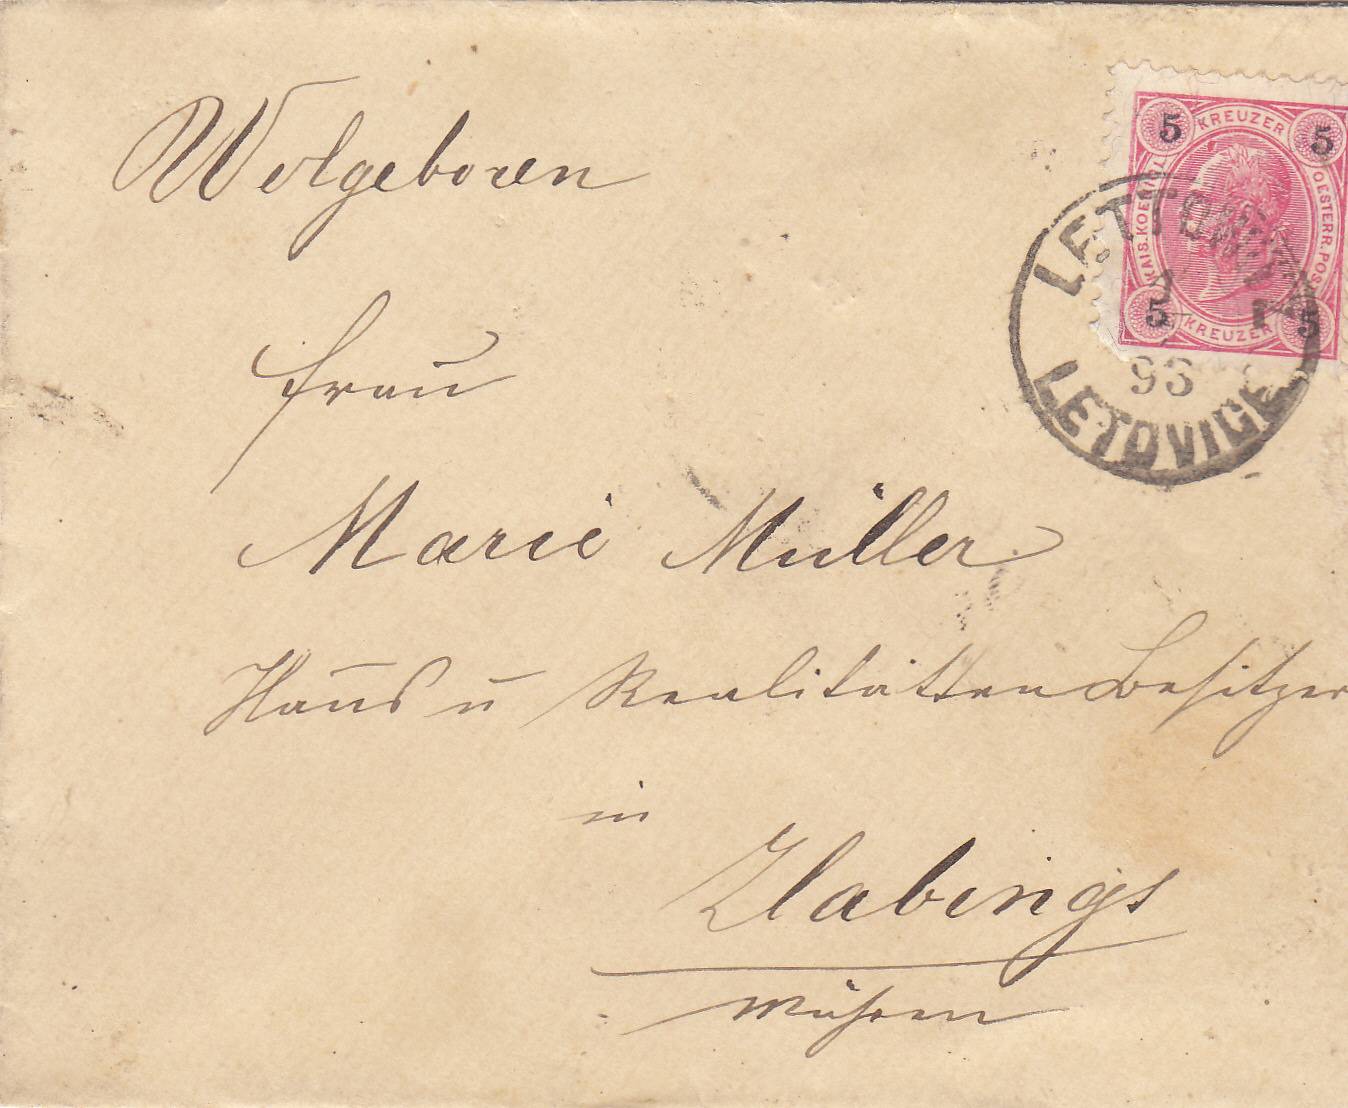 Wolgeboren
Frau
Marie Müller
Haus u Realitätten Besitzer
in
Zlabings
Mähren
5 KREUZER 5
KAIS. KOENIGL. OESTERR. POST
5 KREUZER 5
LETTOWITZ
93
LETOVICE